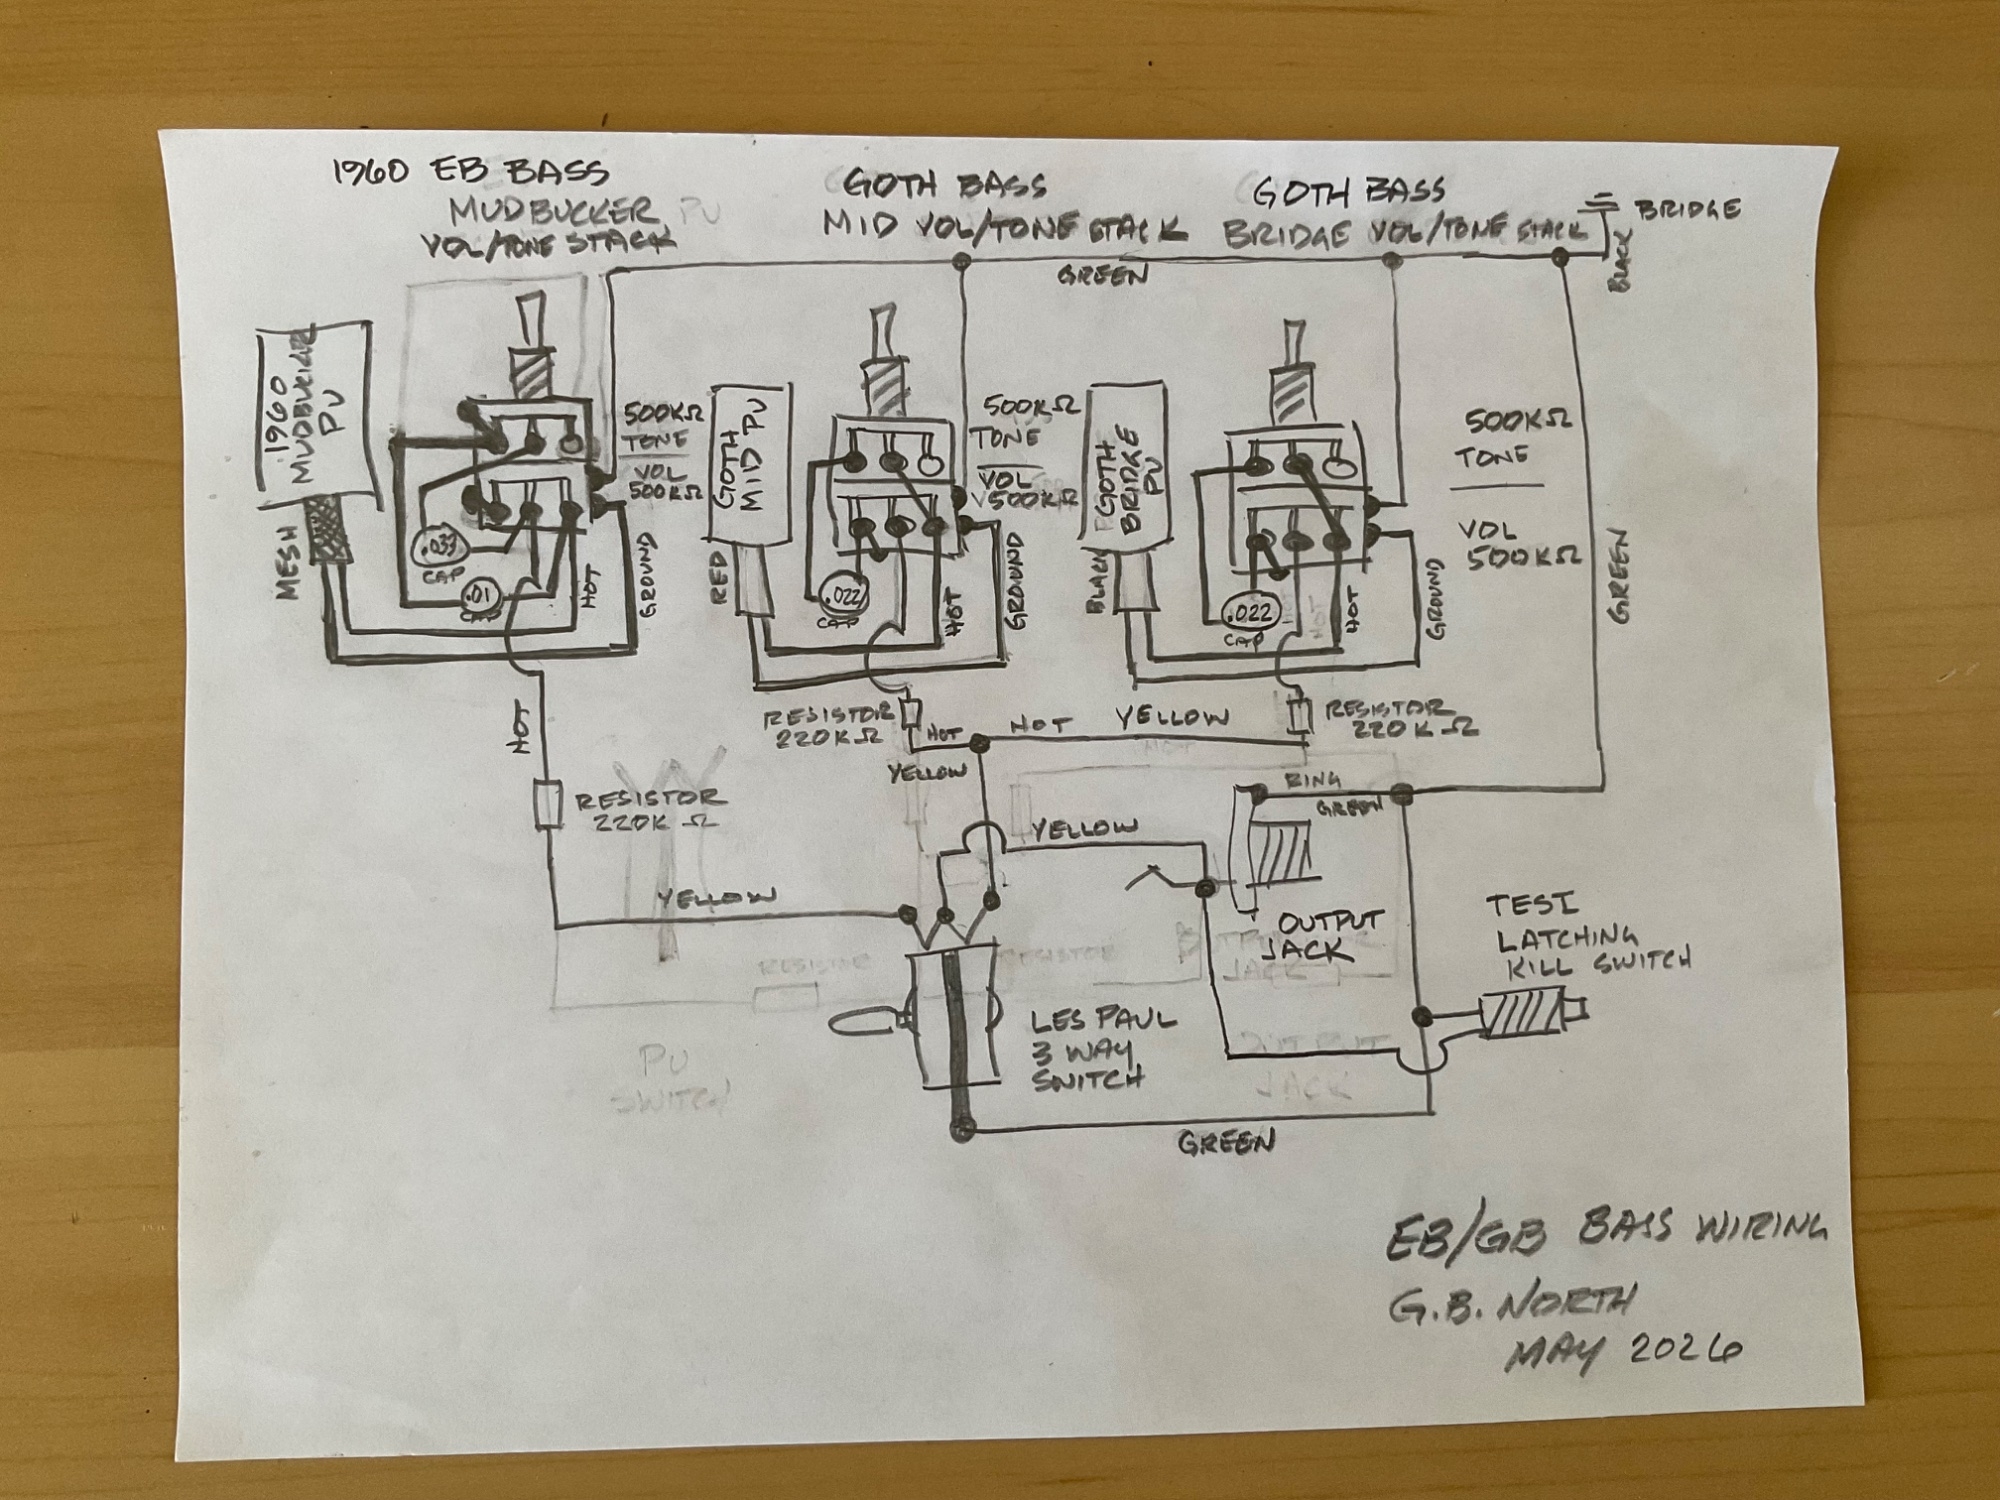 1960 EB BASS
MUDBUCKER PU
VOL/TONE STACK
GOTH BASS
MID VOL/TONE STACK
GOTH BASS
BRIDGE VOL/TONE STACK
BRIDGE
BLACK
GREEN
1960
MUDBUCKER
PU
MESH
500KΩ
TONE
VOL
500KΩ
.033
CAP
.01
CAP
HOT
GROUND
GOTH
MID PU
RED
500KΩ
TONE
VOL
500KΩ
.022
CAP
HOT
GROUND
GOTH
BRIDGE
PU
BLACK
500KΩ
TONE
VOL
500KΩ
.022
CAP
HOT
GROUND
GREEN
HOT
RESISTOR
220KΩ
HOT
HOT
YELLOW
RESISTOR
220KΩ
YELLOW
HOT
RESISTOR
220K Ω
RING
GREEN
YELLOW
YELLOW
OUTPUT
JACK
TEST
LATCHING
KILL SWITCH
RESISTOR
RESISTOR
LES PAUL
3 WAY
SWITCH
PU
SWITCH
OUTPUT
JACK
GREEN
EB/GB BASS WIRING
G.B. NORTH
MAY 2026